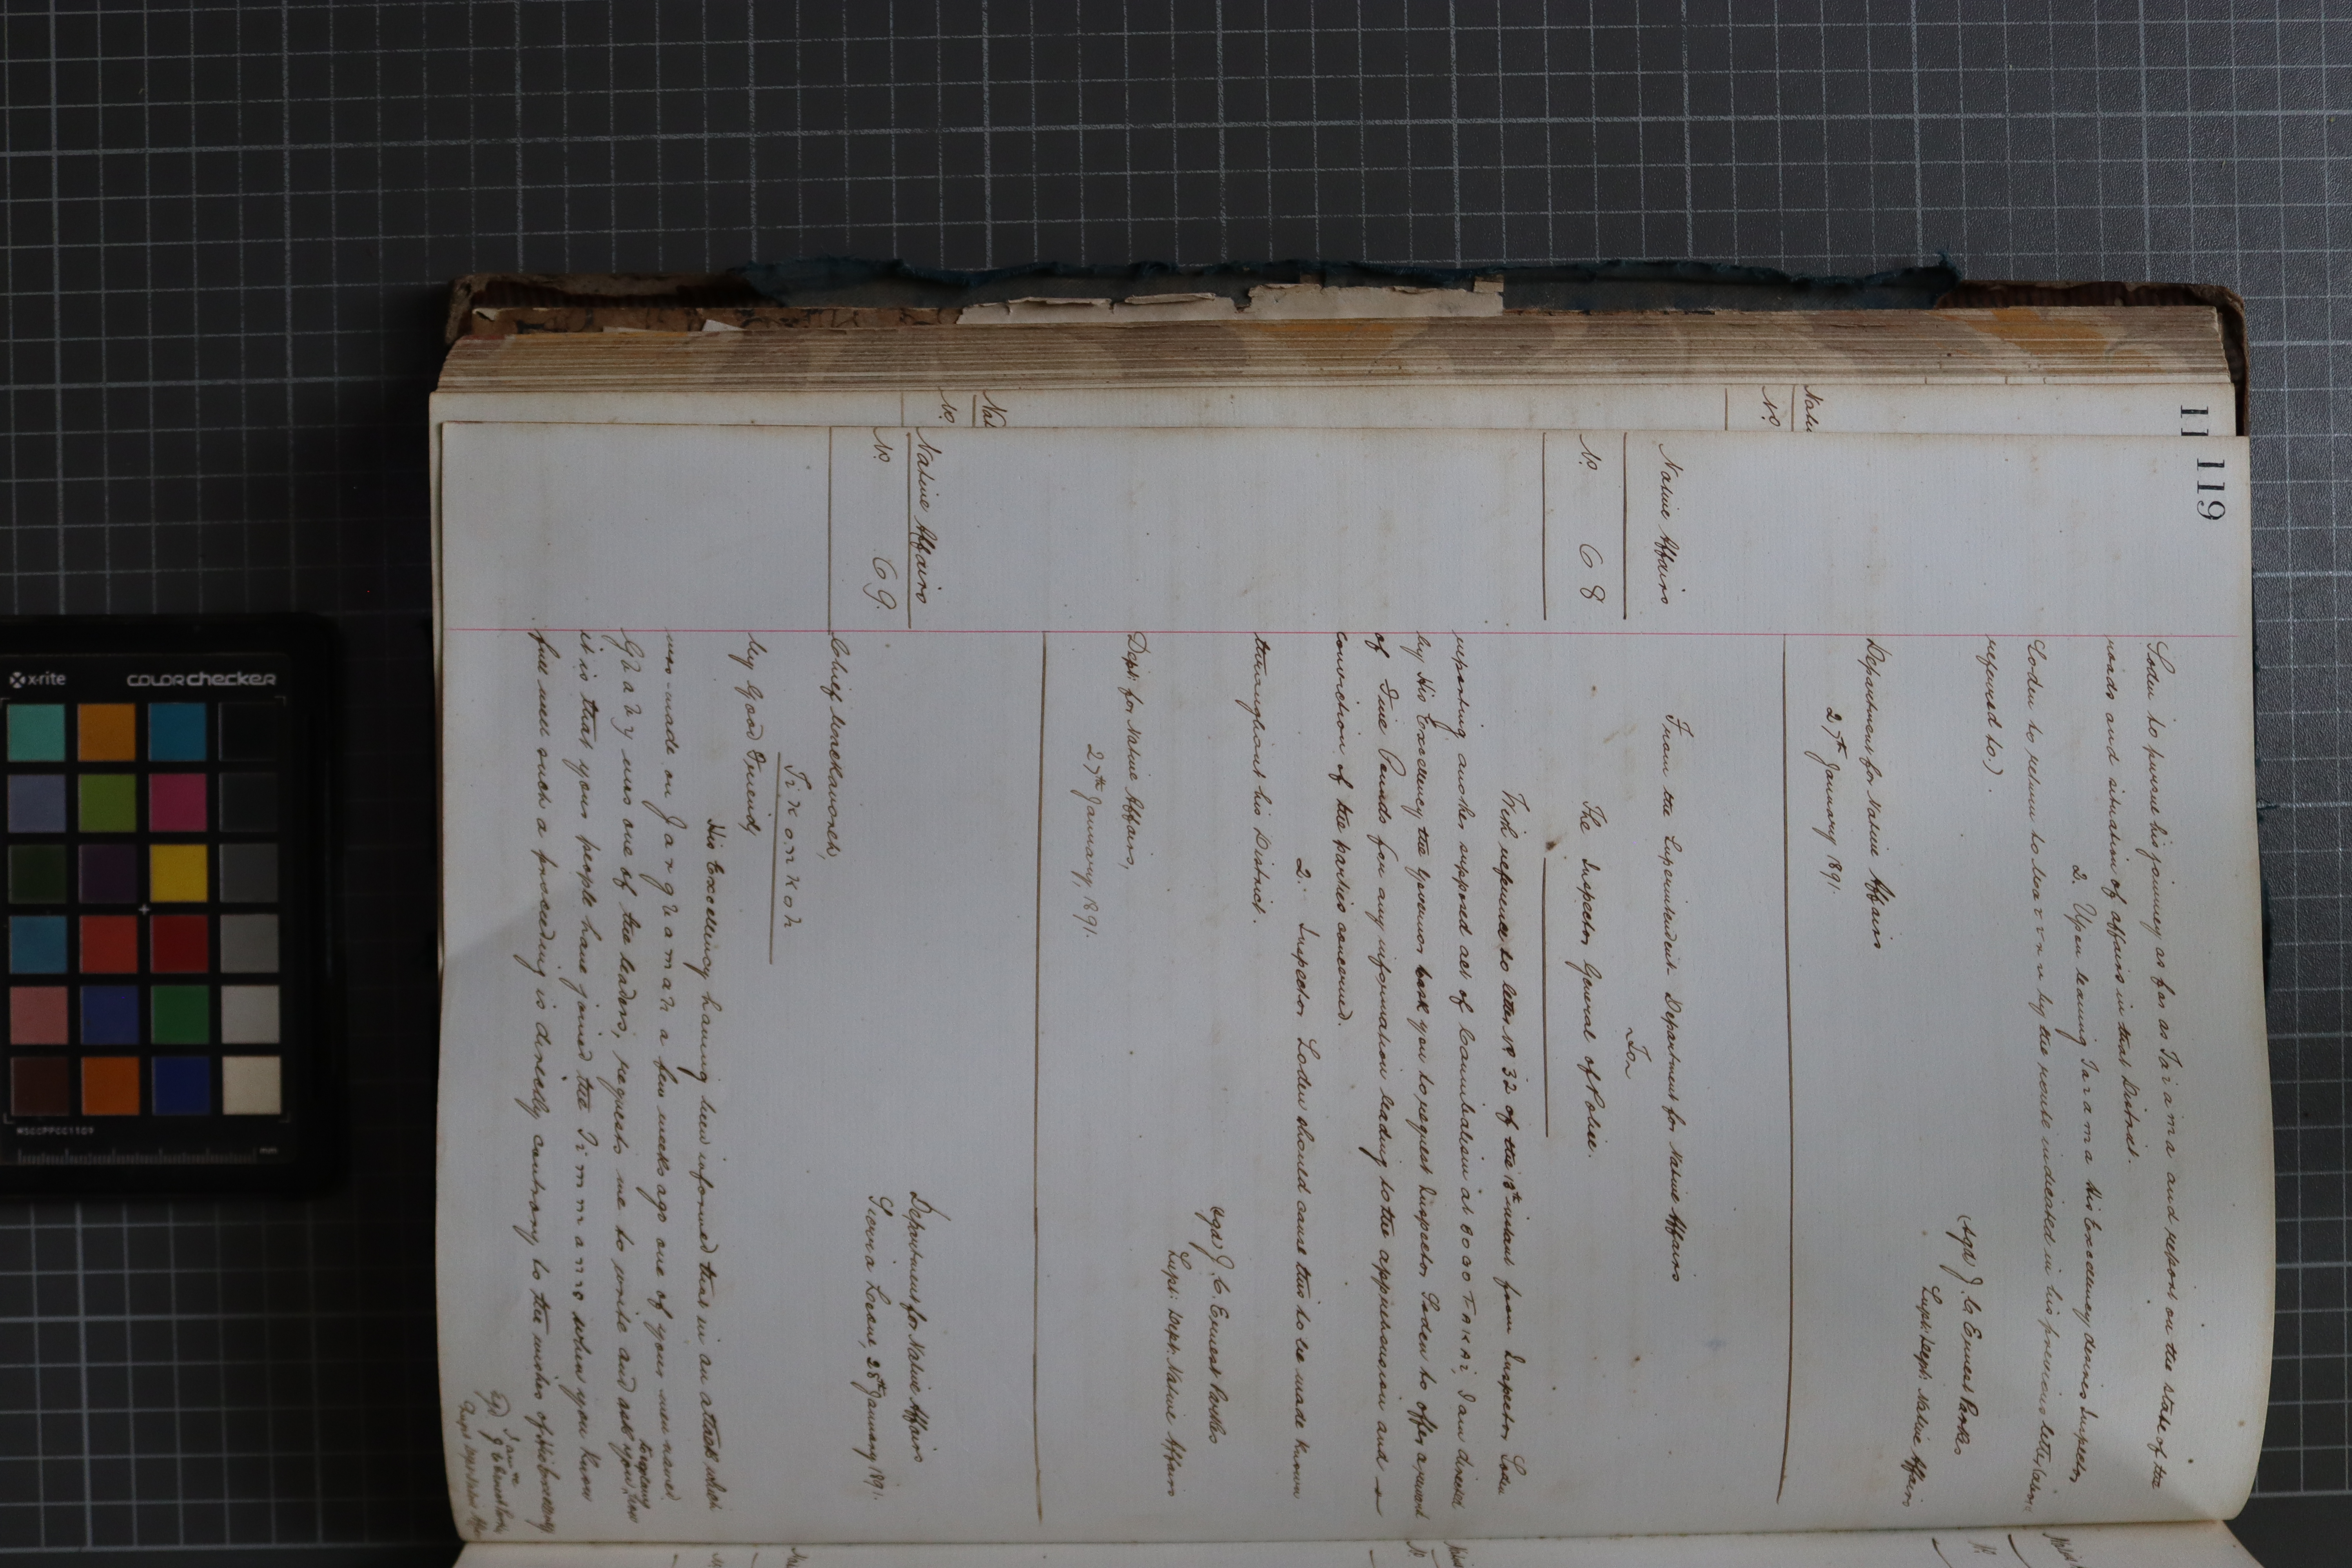 119
Soden to pursue his journey as far as Taiama and report on the state of the
roads and situation of affairs in that District.
2. Upon leaving Taiama His Excellency desires Inspector
Soden to return to by the route indicated in his previous letter (above
referred to.)
(Sgd) J. C. Ernest Parkes
Supt: Dept: Native Affairs
Department for Native Affairs
27th January 1891.
Native Affairs
No. 68
From the Superintendent Department for Native Affairs
To
The Inspector General of Police.
With reference to letter No 32 of the 18th instant from Inspector Soden
reporting another supposed act of Cannibalism at I am directed
by His Excellency the Governor to ask you to request Inspector Soden to offer a reward
of Five Pounds for any information leading to the apprehension and
conviction of the parties concerned.
2. Inspector Soden should cause this to be made known
throughout his District.
(Sgd) J. C. Ernest Parkes
Supt: Dept: Native Affairs
Dept: for Native Affairs,
27th January, 1891.
Native Affairs
No. 69.
Department for Native Affairs
Sierra Leone, 28th January 1891.
Chief
Tikonkoh
My Good Friend,
His Excellency having been informed that in an attack which
was made on a few weeks ago one of your men named
was one of the leaders, requests me to write and ask you how
it is that your people have joined the when you know
full well such a proceeding is directly contrary to the wishes of His Excellency
I am
Sgd J C Ernest Parkes
Supt Dept Native Affairs
x-rite
COLORchecker
MSCCPPCC1109
mm